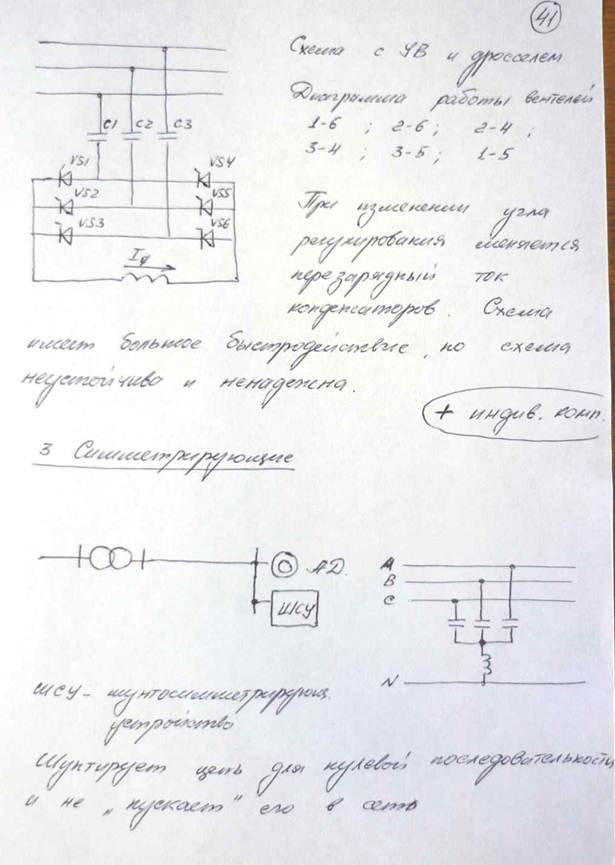 41
Схема с УВ и дросселем
Диаграмма работы вентелей
1-6 ; 2-6 ; 2-4 ;
3-4 ; 3-5 ; 1-5
C1 C2 C3
VS1 VS4
VS2 VS5
VS3 VS6
Id
При изменении угла
регулирования меняется
перезарядный ток
конденсаторов. Схема
имеет большое быстродействие, но схема
неустойчива и ненадежна.
+ индив. комп.
3 Симметрирующие
АД.
ШСУ
A
B
C
N
ШСУ - шунтосимметрирующ.
устройство
Шунтирует цепь для нулевой последовательности
и не „пускает" его в сеть